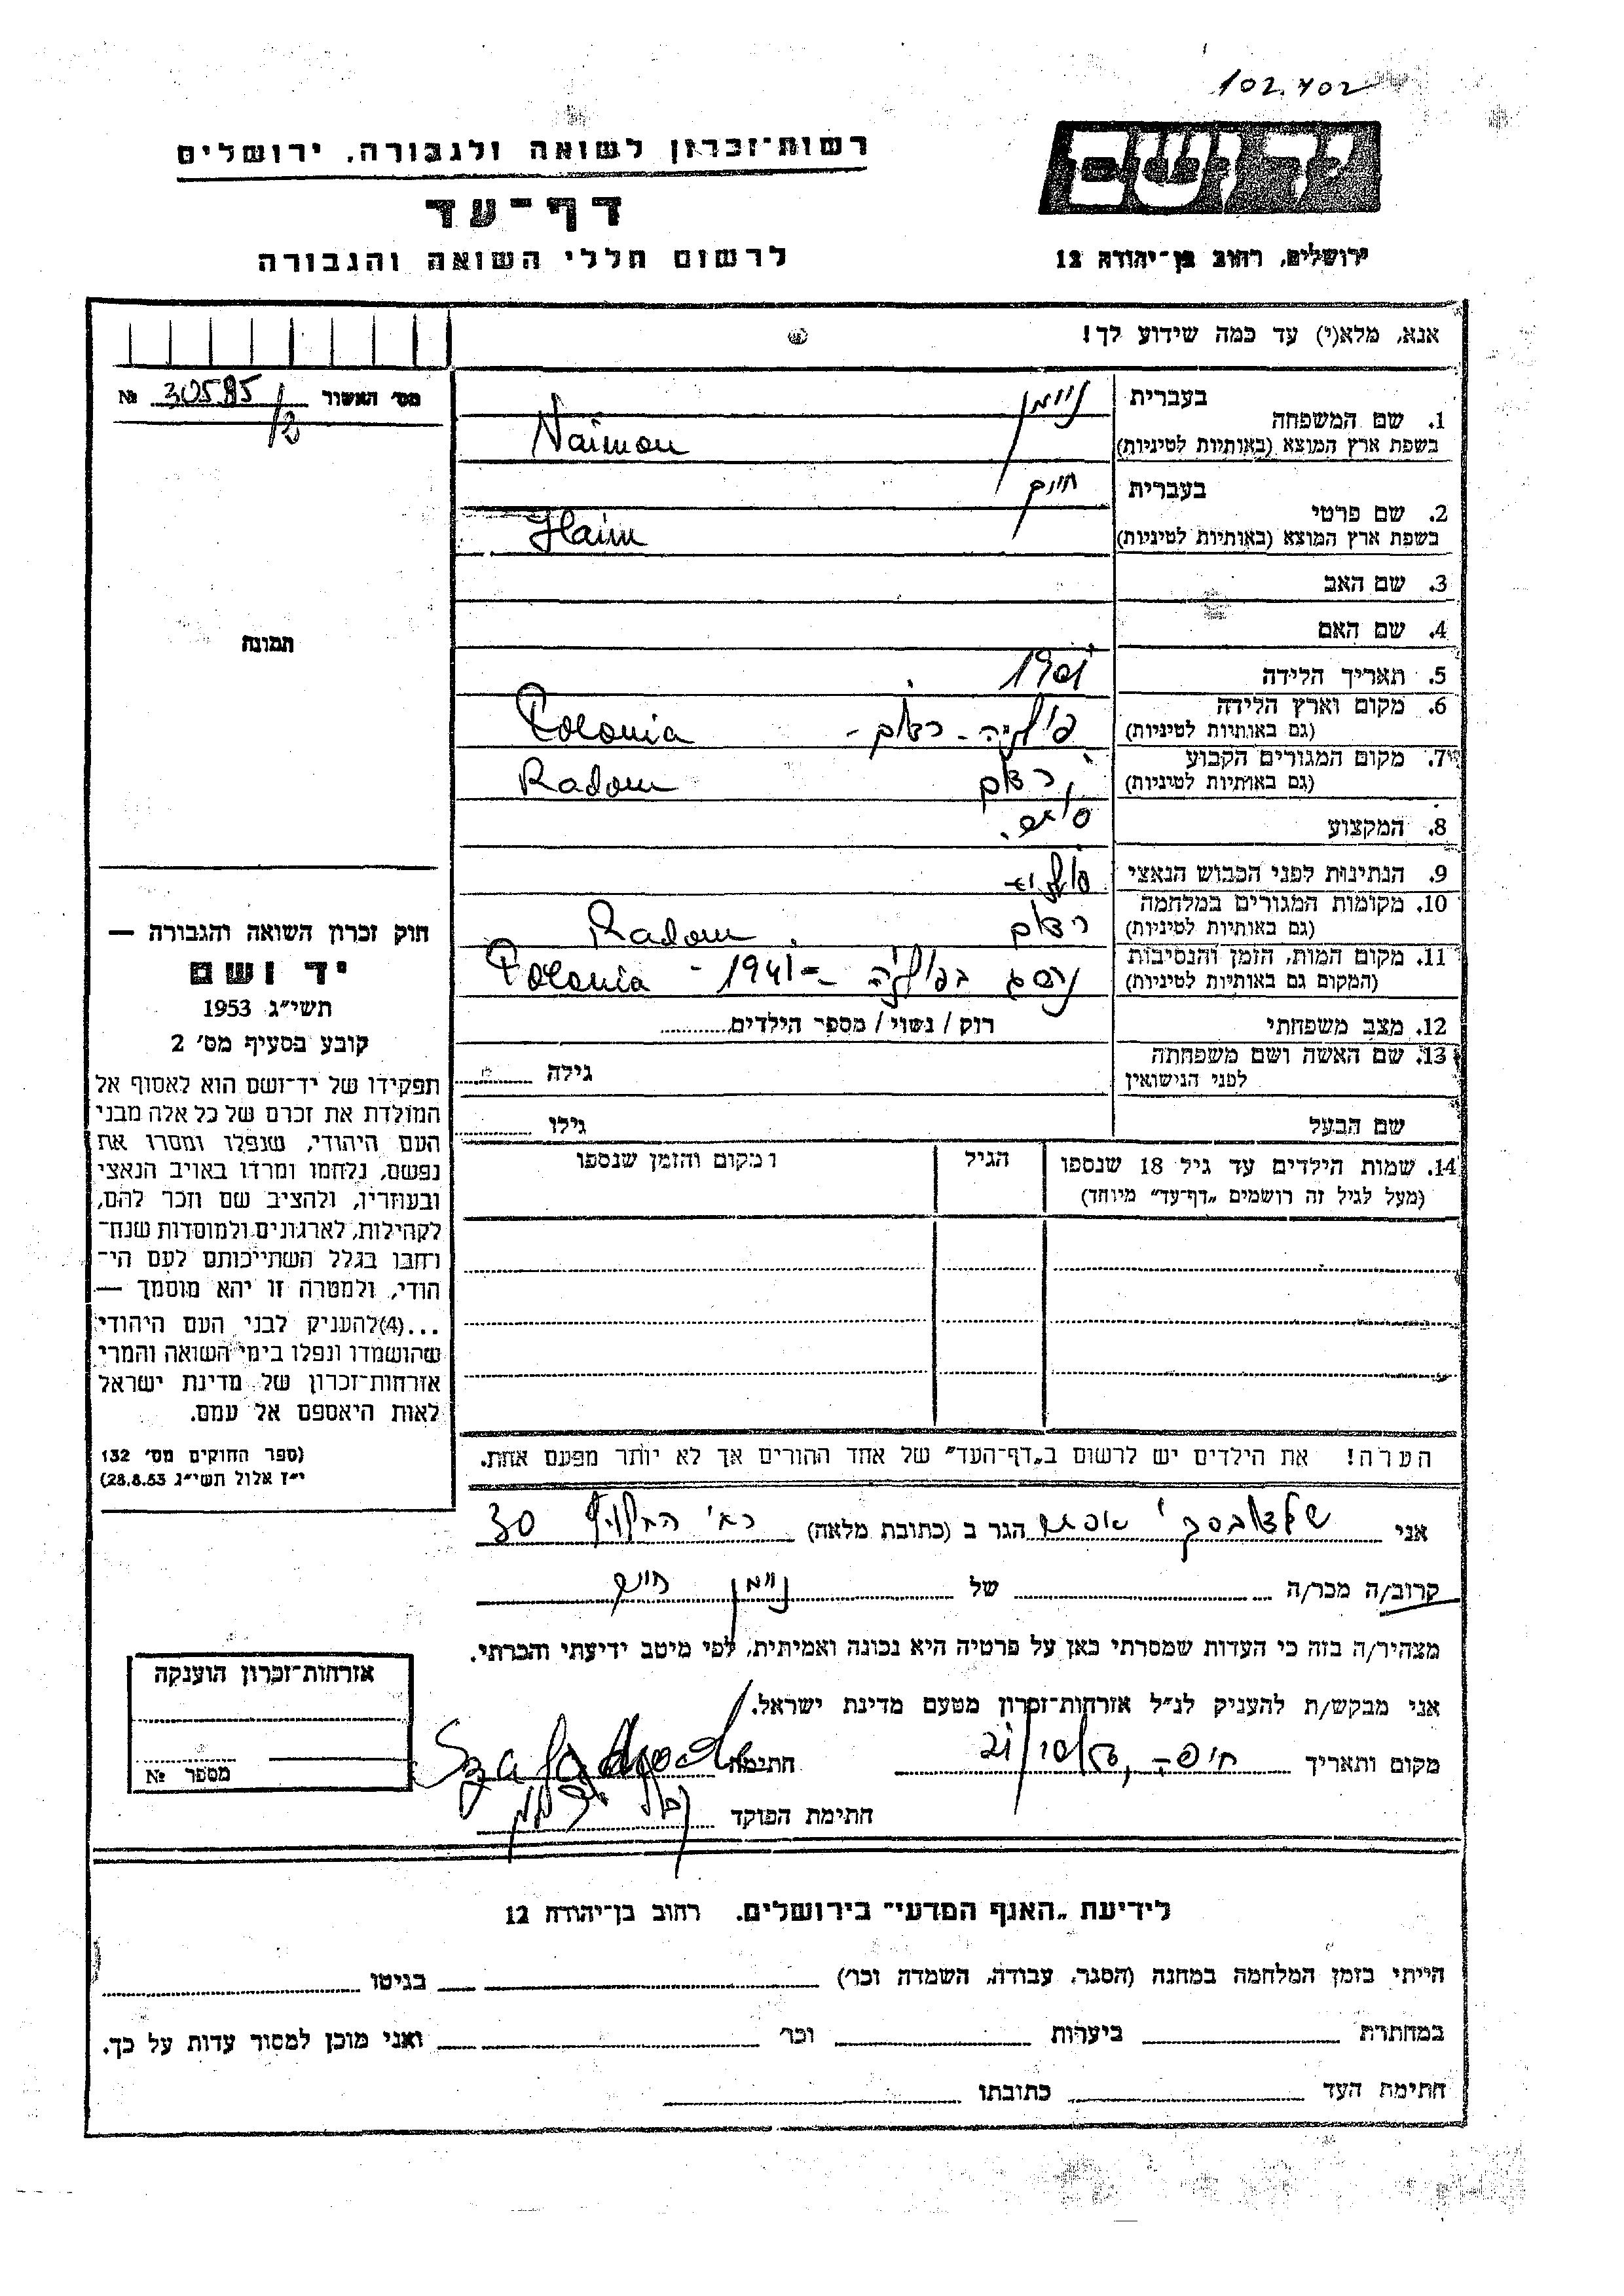 102.402
רשות־זכרון לשואה ולגבורה, ירושלים
דף־עד
לרשום חללי השואה והגבורה
יד ושם
ירושלים, רחוב בן־יהודה 12
אנא, מלא(י) עד כמה שידוע לך!
מס' האשור 30585 №
/2
1. שם המשפחה
בעברית ניימן
בשפת ארץ המוצא (באותיות לטיניות) Naiman
2. שם פרטי
בעברית חיים
בשפת ארץ המוצא (באותיות לטיניות) Haim
3. שם האב
4. שם האם
5. תאריך הלידה 1901
6. מקום וארץ הלידה
(גם באותיות לטיניות) פולניה - ראדום - Polonia
7. מקום המגורים הקבוע
(גם באותיות לטיניות) ראדום Radom
8. המקצוע
9. הנתינות לפני הכבוש הנאצי
10. מקומות המגורים במלחמה
(גם באותיות לטיניות) ראדום Radom
11. מקום המות, הזמן והנסיבות
(המקום גם באותיות לטיניות) בפולניה - 1941 - Polonia
12. מצב משפחתי רוק / נשוי / מספר הילדים
13. שם האשה ושם משפחתה
לפני הנישואין גילה
שם הבעל גילו
14. שמות הילדים עד גיל 18 שנספו
(מעל לגיל זה רושמים „דף־עד" מיוחד)
הגיל
ומקום והזמן שנספו
תמונה
חוק זכרון השואה והגבורה —
יד ושם
תשי"ג 1953
קובע בסעיף מס' 2
תפקידו של יד־ושם הוא לאסוף אל
המולדת את זכרם של כל אלה מבני
העם היהודי, שנפלו ומסרו את
נפשם, נלחמו ומרדו באויב הנאצי
ובעוזריו, ולהציב שם וזכר להם,
לקהילות, לארגונים ולמוסדות שנח־
רחבו בגלל השתייכותם לעם הי־
הודי, ולמטרה זו יהא מוסמך —
...(4)להעניק לבני העם היהודי
שהושמדו ונפלו בימי השואה והמרי
אזרחות־זכרון של מדינת ישראל
לאות היאספם אל עמם.
(ספר החוקים מס' 132
י"ז אלול תשי"ג 28.8.53)
הערה! את הילדים יש לרשום ב„דף־העד" של אחד ההורים אך לא יותר מפעם אחת.
אני הגר ב (כתובת מלאה) 30
קרוב/ה מכר/ה של ניימן חיים
מצהיר/ה בזה כי העדות שמסרתי כאן על פרטיה היא נכונה ואמיתית, לפי מיטב ידיעתי והכרתי.
אני מבקש/ת להעניק לנ"ל אזרחות־זכרון מטעם מדינת ישראל.
מקום ותאריך חיפה, חתימה
חתימת הפוקד
אזרחות־זכרון הוענקה
מספר №
לידיעת „האגף המדעי" בירושלים. רחוב בן־יהודה 12
הייתי בזמן המלחמה במחנה (הסגר, עבודה, השמדה וכו') בגיטו
במחתרת ביערות וכו' ואני מוכן למסור עדות על כך.
חתימת העד כתובתו